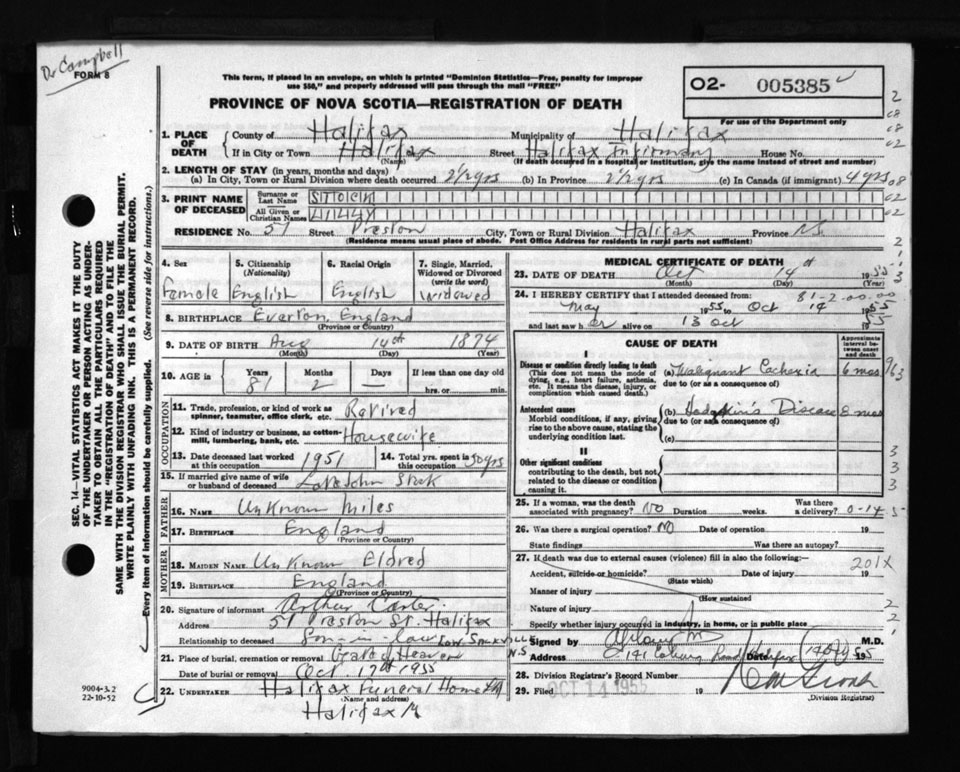 Dr Campbell
FORM 8
This form, if placed in an envelope, on which is printed "Dominion Statistics—Free, penalty for improper
use $50," and properly addressed will pass through the mail "FREE"
PROVINCE OF NOVA SCOTIA—REGISTRATION OF DEATH
O2- 005385
For use of the Department only
1. PLACE OF DEATH County of Halifax Municipality of Halifax
If in City or Town Halifax Street Halifax Infirmary House No.
(Name) (If death occurred in a hospital or institution, give the name instead of street and number)
2. LENGTH OF STAY (in years, months and days)
(a) In City, Town or Rural Division where death occurred 2½ yrs (b) In Province 2½ yrs (c) In Canada (if immigrant) 4 yrs
3. PRINT NAME OF DECEASED Surname or Last Name STOCK
All Given or Christian Names LILLY
RESIDENCE No. 51 Street Preston City, Town or Rural Division Halifax Province N.S.
(Residence means usual place of abode. Post Office Address for residents in rural parts not sufficient)
4. Sex Female
5. Citizenship (Nationality) English
6. Racial Origin English
7. Single, Married, Widowed or Divorced (write the word) Widowed
8. BIRTHPLACE Everton, England
(Province or Country)
9. DATE OF BIRTH Aug 14th 1874
(Month) (Day) (Year)
10. AGE in Years 81 Months 2 Days — If less than one day old
hrs. or min.
OCCUPATION
11. Trade, profession, or kind of work as spinner, teamster, office clerk, etc. Retired
12. Kind of industry or business, as cotton-mill, lumbering, bank, etc. Housewife
13. Date deceased last worked at this occupation 1951
14. Total yrs. spent in this occupation 50 yrs
15. If married give name of wife or husband of deceased Late John Stock
FATHER
16. NAME Unknown Miles
17. BIRTHPLACE England
(Province or Country)
MOTHER
18. MAIDEN NAME Unknown Eldred
19. BIRTHPLACE England
(Province or Country)
20. Signature of informant Arthur Carter
Address 51 Preston St. Halifax
Relationship to deceased Son-in-law
21. Place of burial, cremation or removal Gate of Heaven Low. Sackville N.S
Date of burial or removal Oct. 17th 1955
22. UNDERTAKER Halifax Funeral Home Ltd
(Name and address)
Halifax
MEDICAL CERTIFICATE OF DEATH
23. DATE OF DEATH Oct 14th 1955
(Month) (Day) (Year)
81-2-00-00
24. I HEREBY CERTIFY that I attended deceased from
May 1955 to Oct 14 1955
and last saw her alive on 13 Oct 55
CAUSE OF DEATH
Approximate interval between onset and death
I
Disease or condition directly leading to death
(This does not mean the mode of dying, e.g., heart failure, asthenia, etc. It means the disease, injury, or complication which caused death.)
(a) Malignant Cachexia 6 mos
due to (or as a consequence of)
Antecedent causes
Morbid conditions, if any, giving rise to the above cause, stating the underlying condition last.
(b) Hodgkin's Disease 8 mos
due to (or as a consequence of)
(c)
II
Other significant conditions
contributing to the death, but not related to the disease or condition causing it.
25. If a woman, was the death associated with pregnancy? NO Duration weeks. Was there a delivery? 0-14-5
26. Was there a surgical operation? NO Date of operation 19
State findings Was there an autopsy?
27. If death was due to external causes (violence) fill in also the following:
201X
Accident, suicide or homicide? Date of injury 19
(State which)
Manner of injury
(How sustained
Nature of injury
Specify whether injury occurred in industry, in home, or in public place
Signed by M.D.
Address 141 Coburg Road Halifax Date 14 Oct 55
28. Division Registrar's Record Number
29. Filed OCT 14 1955 19
(Division Registrar)
SEC. 14—VITAL STATISTICS ACT MAKES IT THE DUTY
OF THE UNDERTAKER OR PERSON ACTING AS UNDER-
TAKER TO OBTAIN ALL THE PARTICULARS REQUIRED
IN THE "REGISTRATION OF DEATH" AND TO FILE THE
SAME WITH THE DIVISION REGISTRAR WHO SHALL ISSUE THE BURIAL PERMIT.
WRITE PLAINLY WITH UNFADING INK. THIS IS A PERMANENT RECORD.
Every item of information should be carefully supplied. (See reverse side for instructions.)
9004-3.2
22-10-52